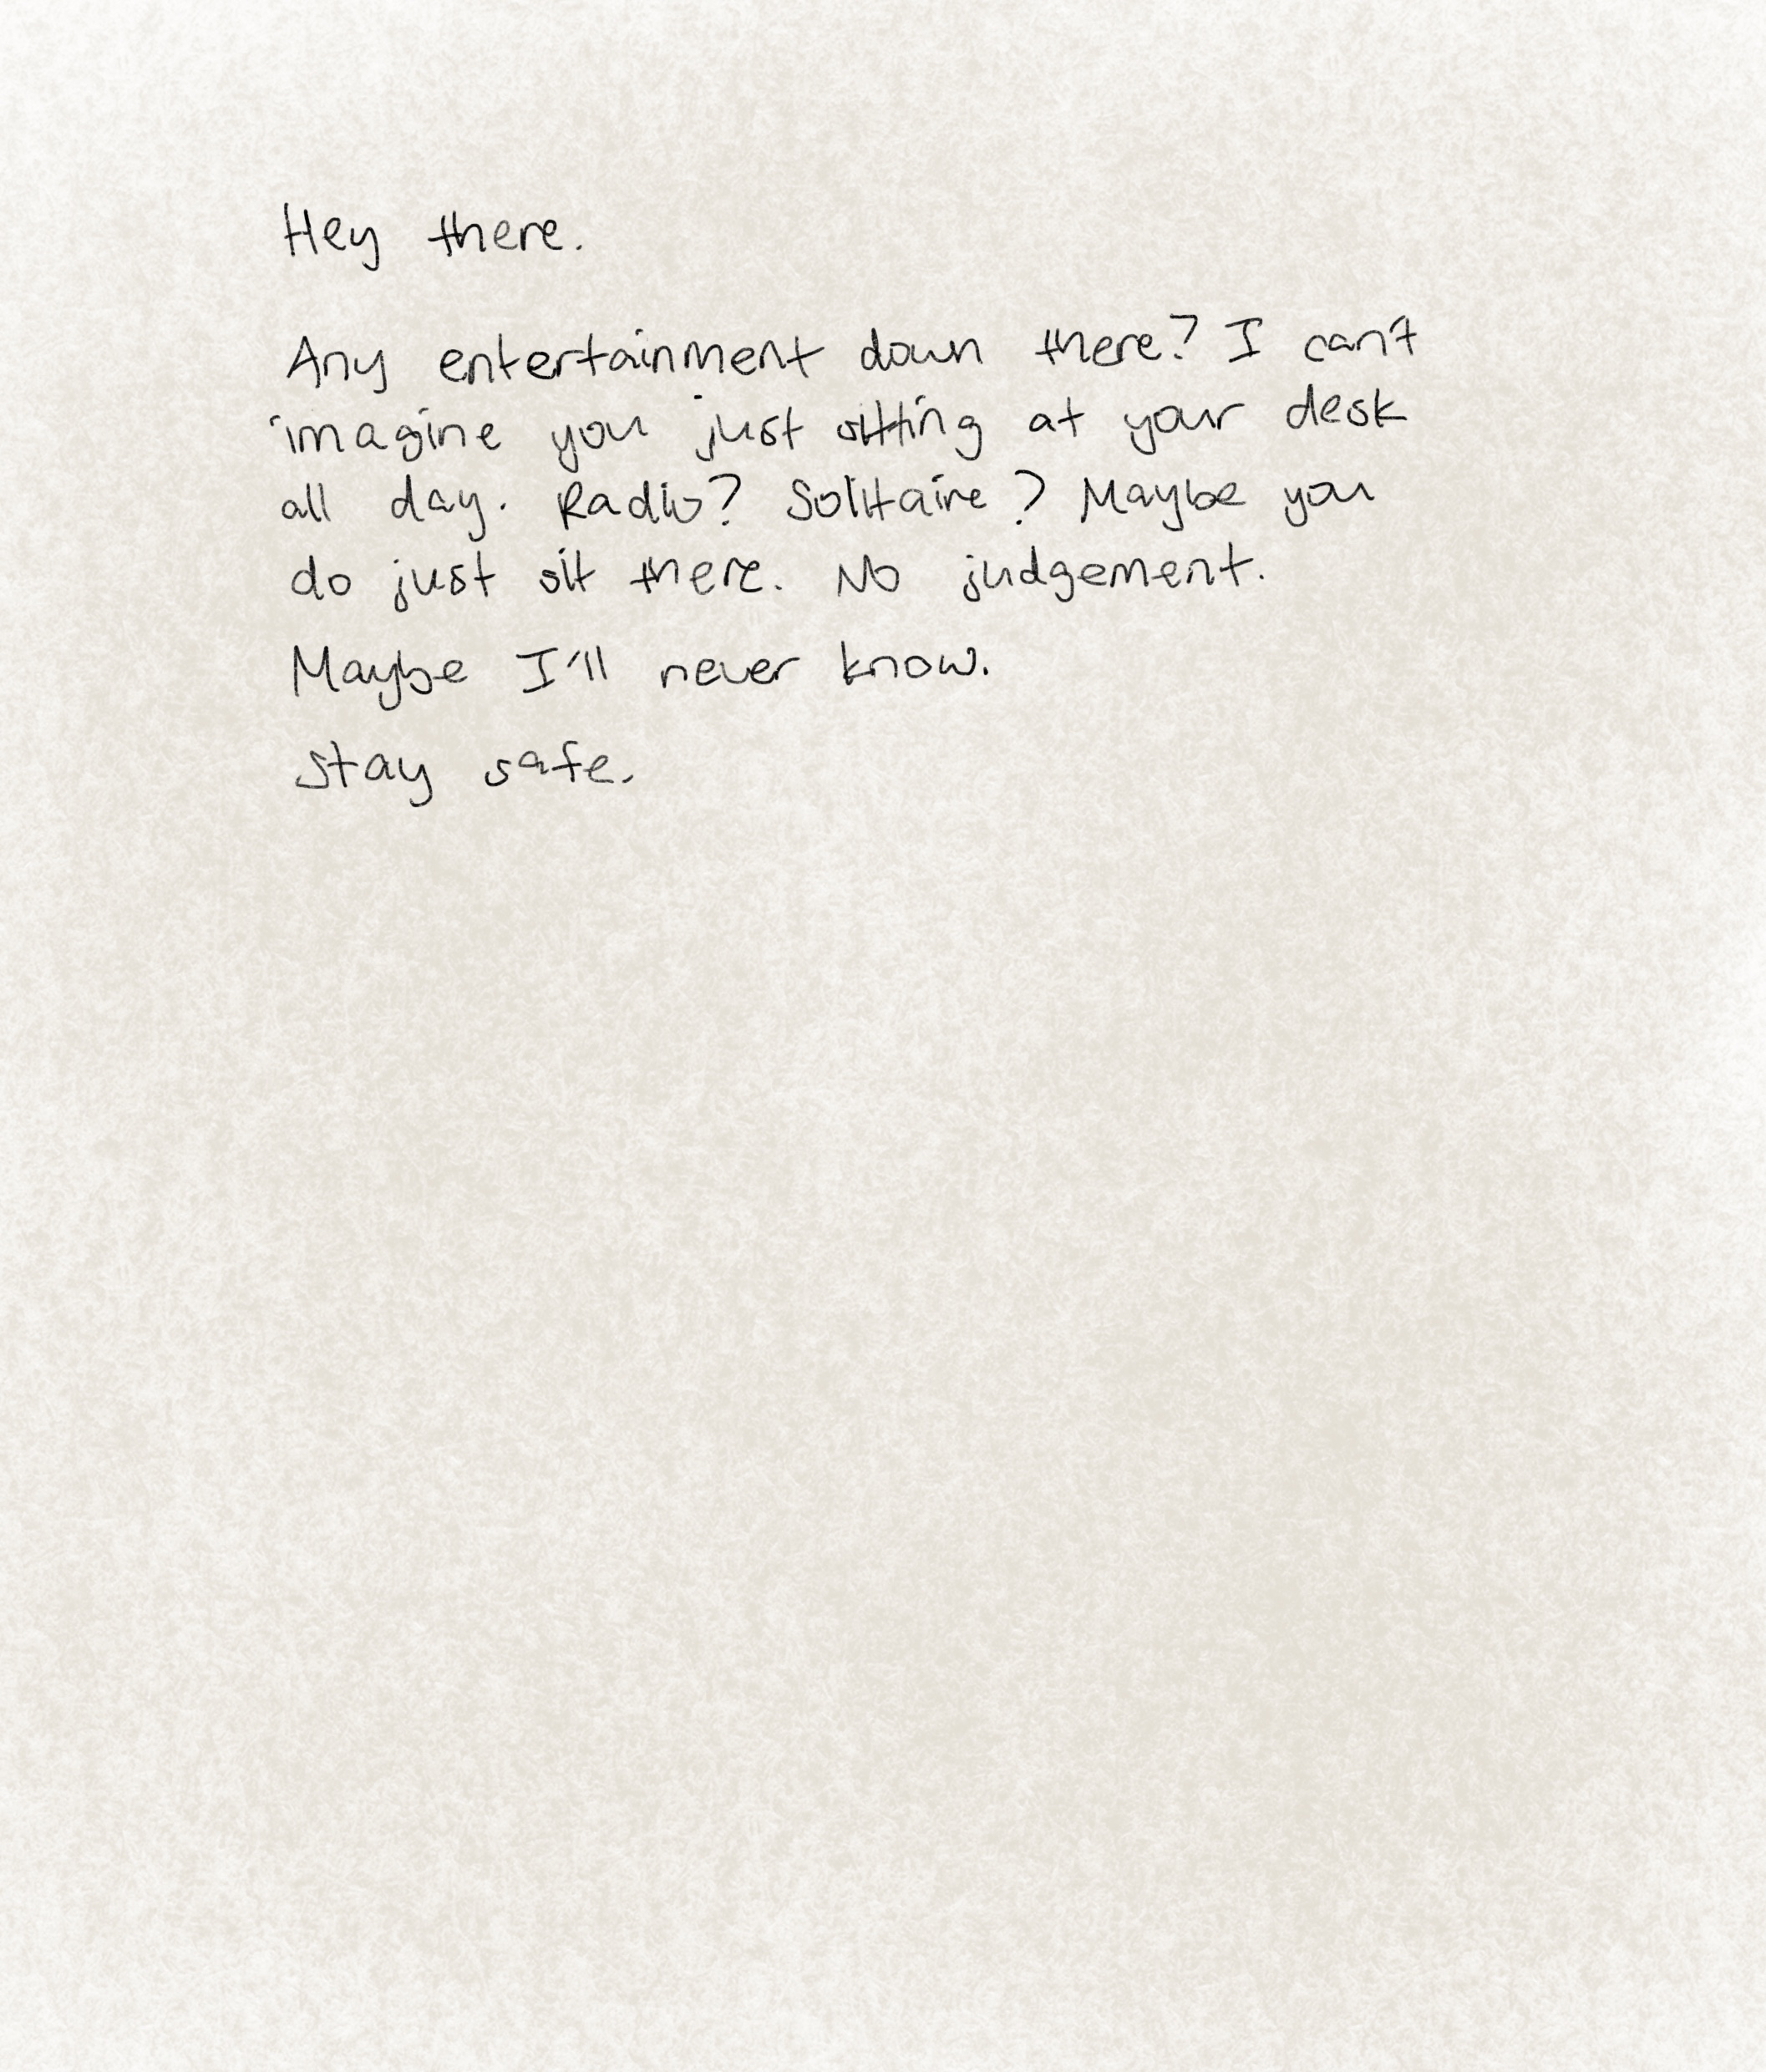 Hey there.
Any entertainment down there? I can't
imagine you just sitting at your desk
all day. Radio? Solitaire? Maybe you
do just sit there. No judgement.
Maybe I'll never know.
Stay safe.